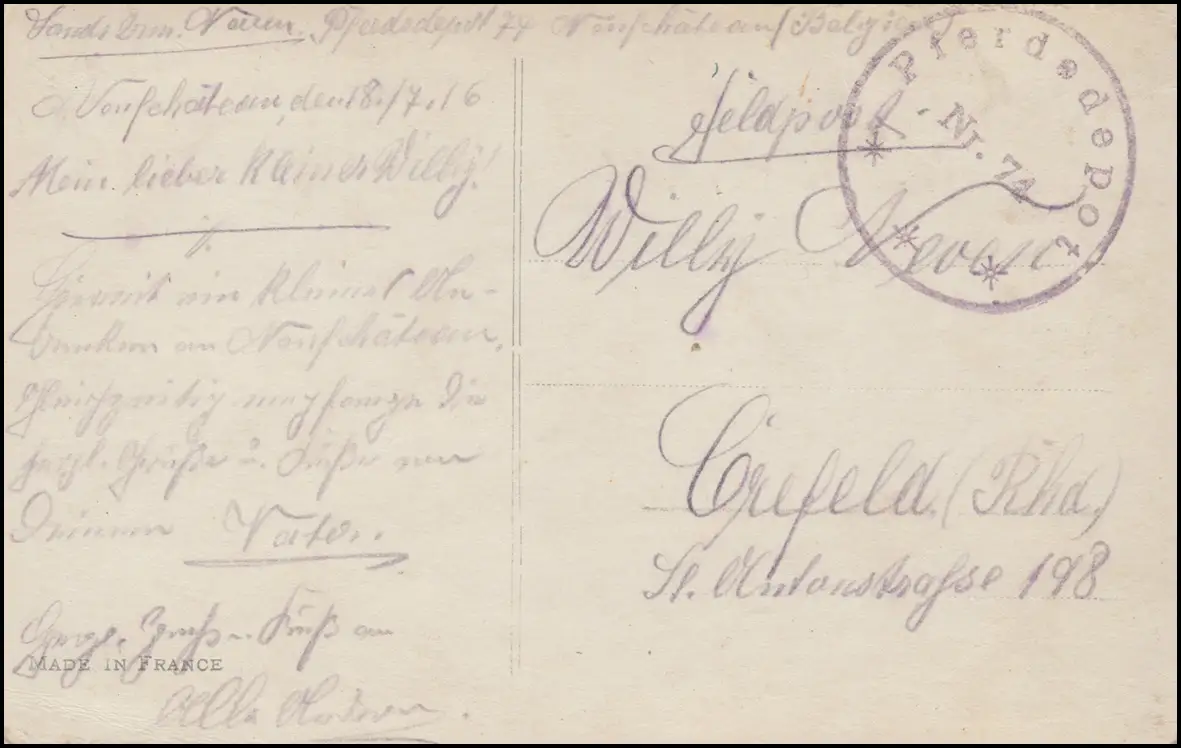 Pferdedepot 74 Neufchâteau/Belgien
Neufchâteau, den 18./7.16
Mein lieber kleiner Willy!
Hiermit ein kleines An-
denken an Neufchâteau.
Gleichzeitig empfange die
herzl. Grüße u. Küsse von
Deinem Vater.
Herzl. Gruß u. Kuß an
Alle Anderen.
MADE IN FRANCE
Feldpost.
Willy
Crefeld. (Rhd.)
St. Antonstraße 198
Pferdedepot
Nr. 74